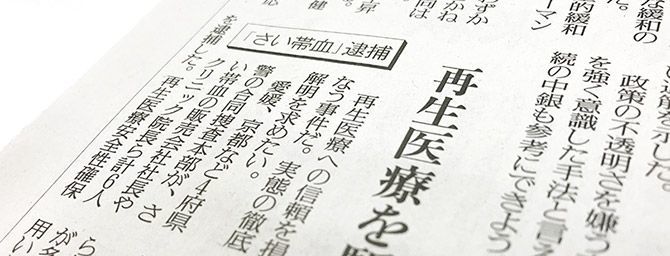 な緩和の
的緩和
ーマン
ずか
かね
問は
昇
健
応
示した。
政策の不透明さを嫌う
を強く意識した手法と言え
続の中銀も参考にできよう
再生医療を
「さい帯血」逮捕
再生医療への信頼を損
なう事件だ。実態の徹底
解明を求めたい。
愛媛、京都など4府県
警の合同捜査本部が、さ
い帯血の販売会社社長や
クリニック院長ら計6人
を逮捕した。
再生医療安全性確保
ら
が多
用い